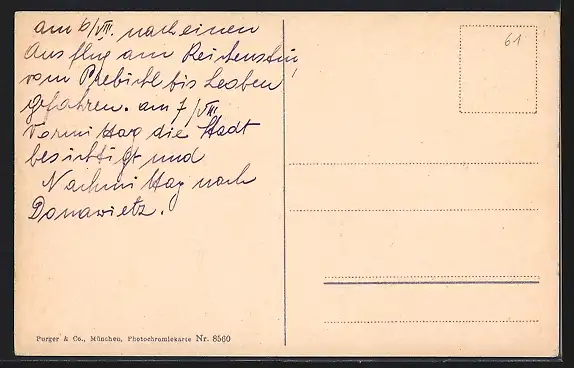 am 6/VIII. nach einen
Ausflug am Reichenstein,
vom Prebichl bis Leoben
gefahren. am 7/VIII
Vormittag die Stadt
besichtigt und
Nachmittag nach
Donawietz.
61
Purger & Co., München, Photochromiekarte Nr. 8560